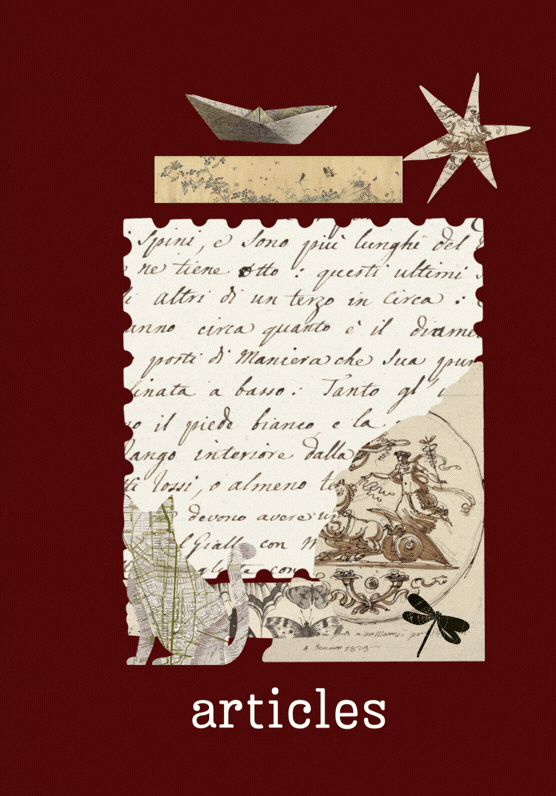 Spini, e sono più lunghi del
ne tiene otto : questi ultimi
altri di un terzo in circa :
anno circa quanto è il diame
porti di Maniera che sua
inata a basso : Tanto gl'
il piede bianco e la
ango interiore dalla
Rossi, o almeno te
devono avere
l Giallo con
con
articles